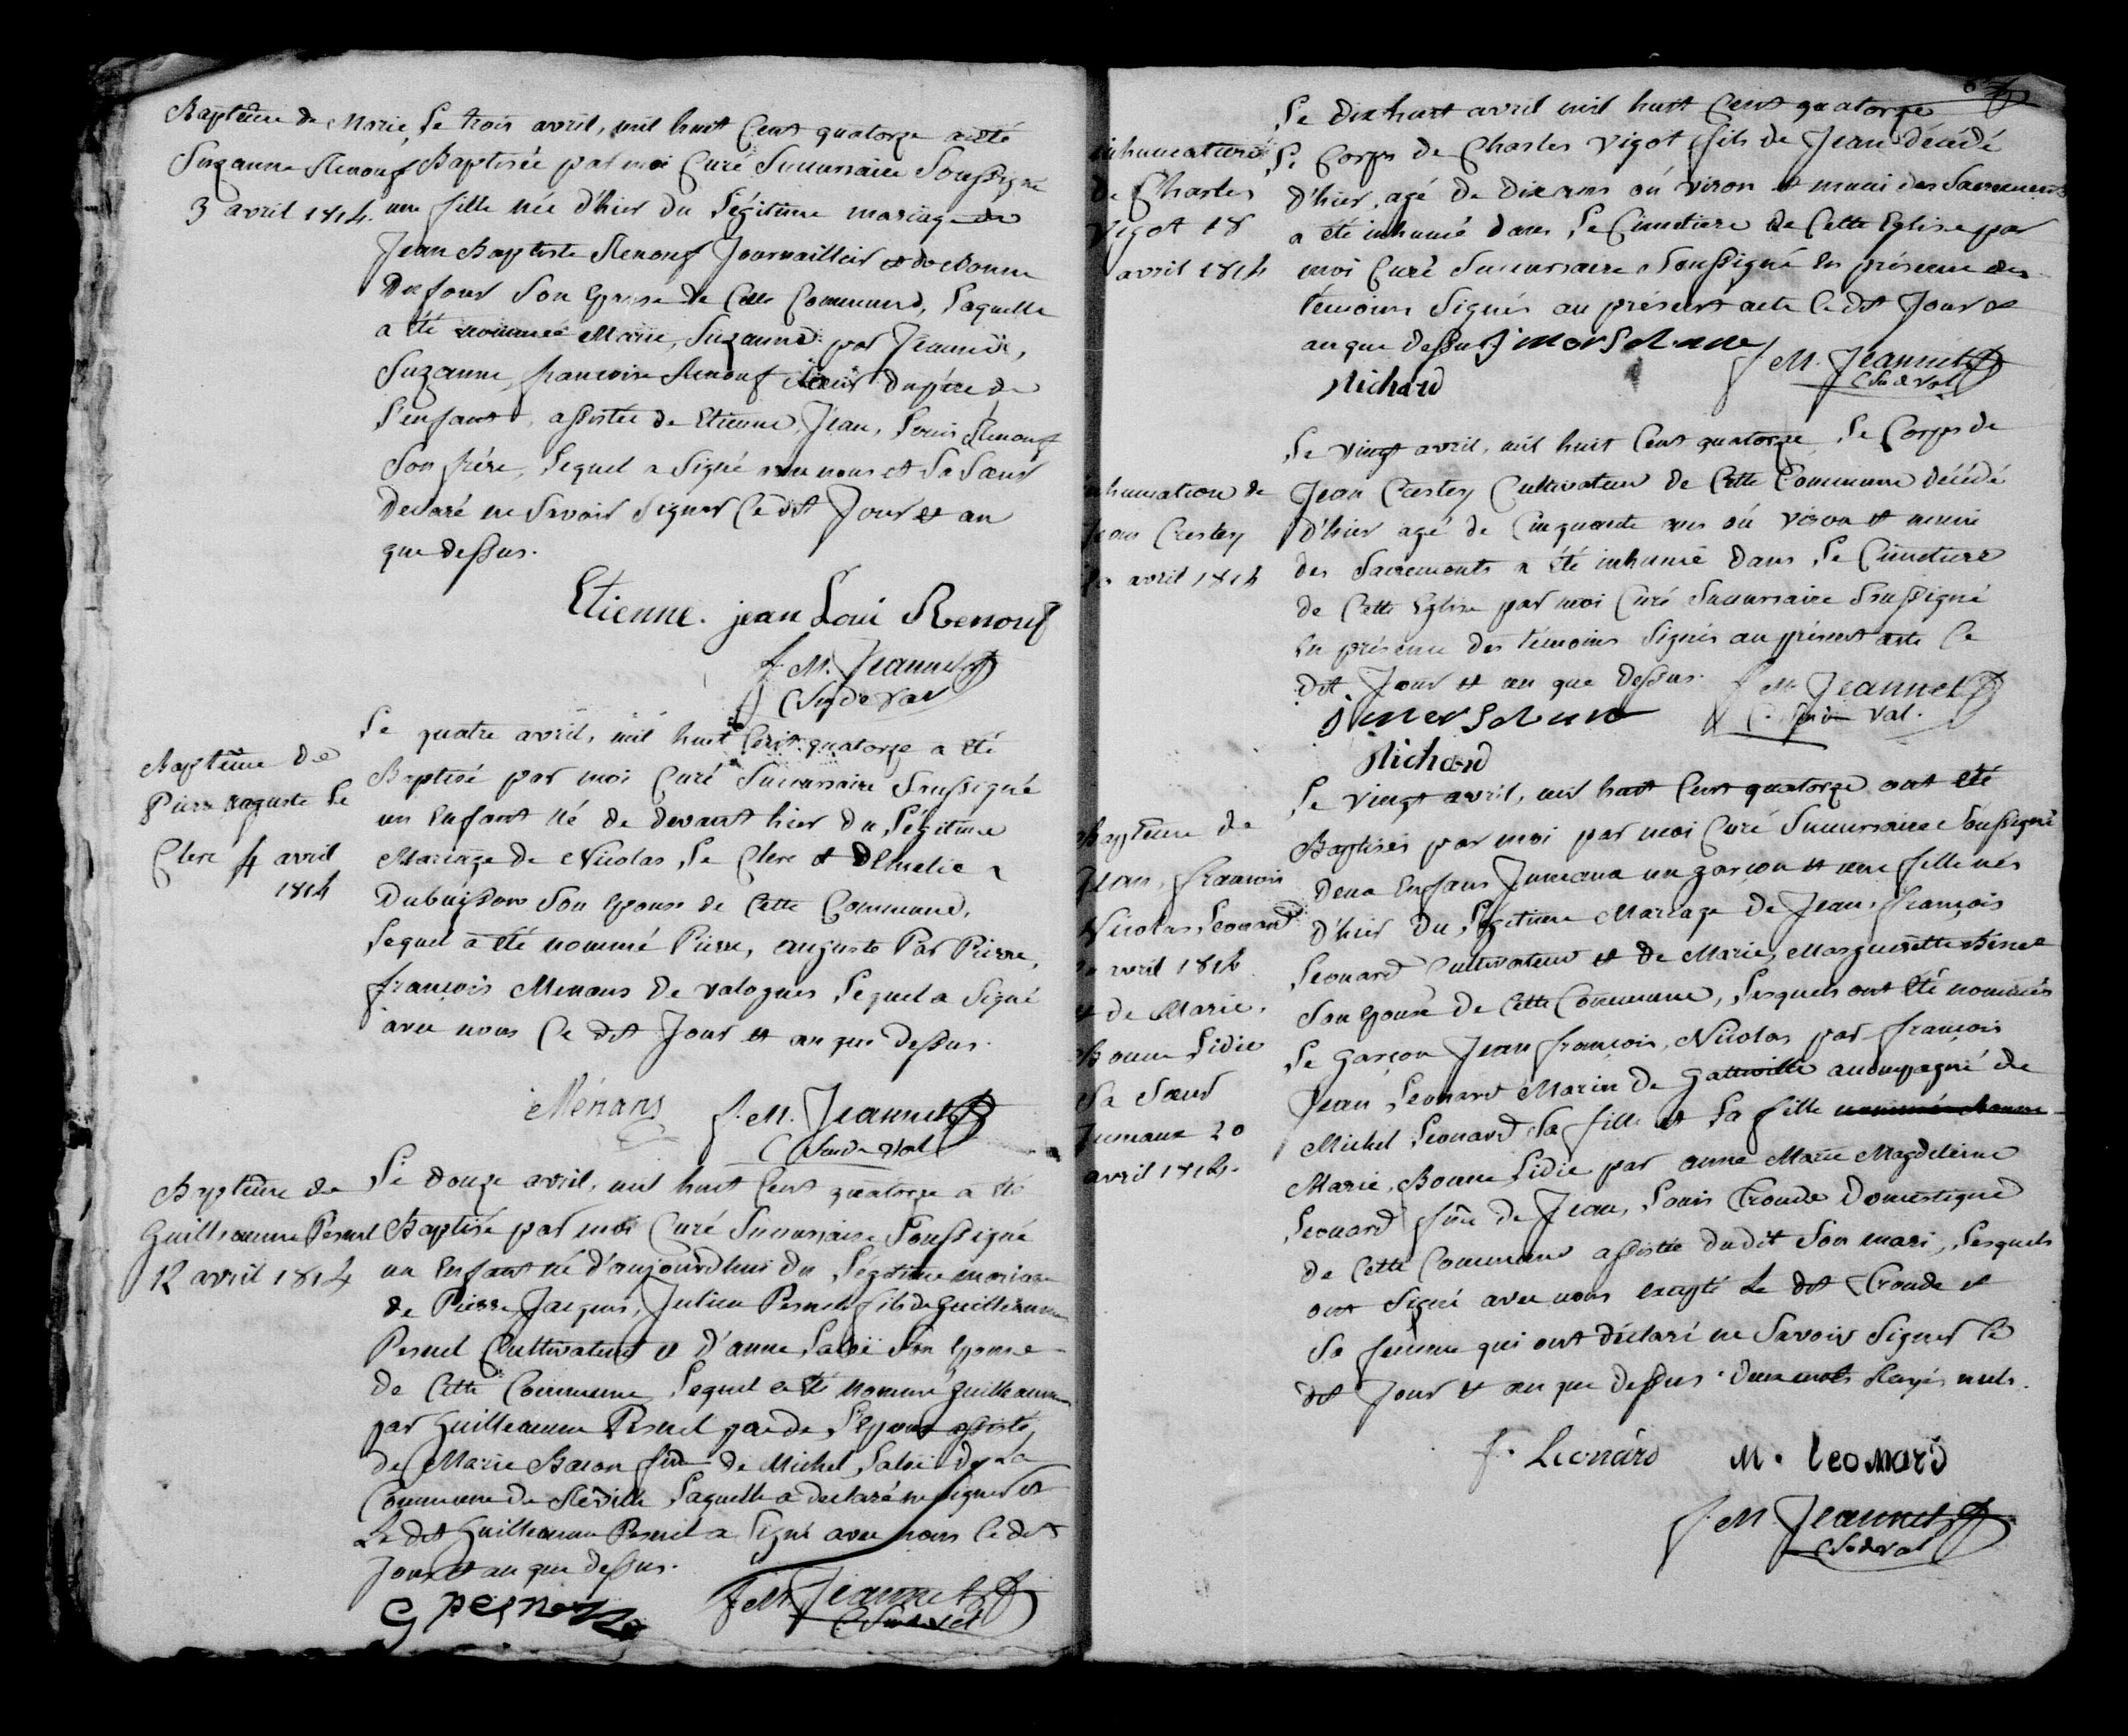 Baptême de Marie
Suzanne Renouf
3 avril 1814.
Le trois avril, mil huit Cent quatorze a été
Baptisée par moi Curé Succursaire Soussigné
une fille née d'hier du Légitime mariage de
Jean Baptiste Renouf Journaillier et de Bonne
Dufour Son Epouse de Cette Commune, Laquelle
a été nommée Marie, Suzanne par Jeanne,
Suzanne françoise Renouf Sœur du père de
L'enfant, assistée de Etienne, Jean, Louis Renouf
Son frère, Lequel a Signé avec nous et Sa Sœur
Declaré ne Savoir Signer Ce dit Jour et an
que dessus.
Etienne. jean Loui Renouf
f. M. Jeannet
C Sur de Val
Baptême de
Pierre auguste Le
Clerc 4 avril
1814
Le quatre avril, mil huit Cent quatorze a été
Baptisé par moi Curé Succursaire Soussigné
un Enfant né de devant hier du Légitime
Mariage de Nicolas Le Clerc et d'Emelie
Dubuisson Son Epouse de Cette Commune,
Lequel a été nommé Pierre, auguste Par Pierre,
françois Menans de valognes Lequel a Signé
avec nous Ce dit Jour et an que dessus.
Ménans f. M. Jeannet
C Sur de Val
Baptême de
Guilleaume Pesnel
12 avril 1814
Le douze avril, mil huit Cent quatorze a été
Baptisé par moi Curé Succursaire Soussigné
un Enfant né d'aujourdhui du Légitime mariage
de Pierre Jacques, Julien Pesnel fils de Guilleaume
Pesnel Cultivateur et d'anne Saloi Son Epouse
de Cette Commune Lequel a été nommé Guilleaume
par Guilleaume Pesnel assisté
de Marie Bacon fme de Michel Saloi de La
Commune de Réville Laquelle a declaré ne Signer et
Le dit Guilleaume Pesnel a Signé avec nous Ce dit
Jour et an que dessus.
G pesnel f. M. Jeannet
C Sur de Val
inhumation
de Charles
Vigot 18
avril 1814
Le Dix huit avril mil huit Cent quatorze
Le Corps de Charles Vigot fils de Jean décédé
d'hier, agé de Dix ans où viron et muni des Sacrements
a été inhumé dans Le Cimetiere de Cette Eglise par
moi Curé Succursaire Soussigné En présence des
témoins Signés au présent acte Ce dit Jour et
an que dessus.
f M. Jeannet
C Sur de Val
Richard
inhumation de
Jean Crestey
20 avril 1814
Le vingt avril, mil huit Cent quatorze, Le Corps de
Jean Crestey Cultivateur de Cette Commune décédé
d'hier agé de Cinquante ans où viron et muni
des Sacrements a été inhumé dans Le Cimetiere
de Cette Eglise par moi Curé Succursaire Soussigné
En présence des témoins Signés au présent acte Ce
dit Jour et an que dessus.
f M. Jeannet
C. Sur de Val.
Richard
Baptême de
Jean, francois
Nicolas Leonard
20 avril 1814
et de Marie,
Bonne Lidie
Sa Sœur
Jumaux 20
avril 1814.
Le vingt avril, mil huit Cent quatorze ont été
Baptisés par moi par moi Curé Succursaire Soussigné
deux Enfans Jumeaux un garçon et une fille nés
d'hier du Légitime Mariage de Jean, françois
Leonard Cultivateur et de Marie, Marguerite Binet
Son Epouse de Cette Commune, Lesquels ont été nommés
Le Garçon Jean françois, Nicolas par françois
Jean Leonard Marin de Gatteville accompagné de
Michel Leonard Sa fille et La fille nommée Bonne
Marie, Bonne Lidie par anne Marie Magdeleine
Leonard fme de Jean, Louis Croude Domestique
de Cette Commune assistée dudit Son mari, Lesquels
ont Signé avec nous excepté Le dit Croude et
Sa femme qui ont déclaré ne Savoir Signer Ce
dit Jour et an que dessus. deux mots Rayés nuls.
f. Leonard M. leonard
f. M. Jeannet
C Sur de Val